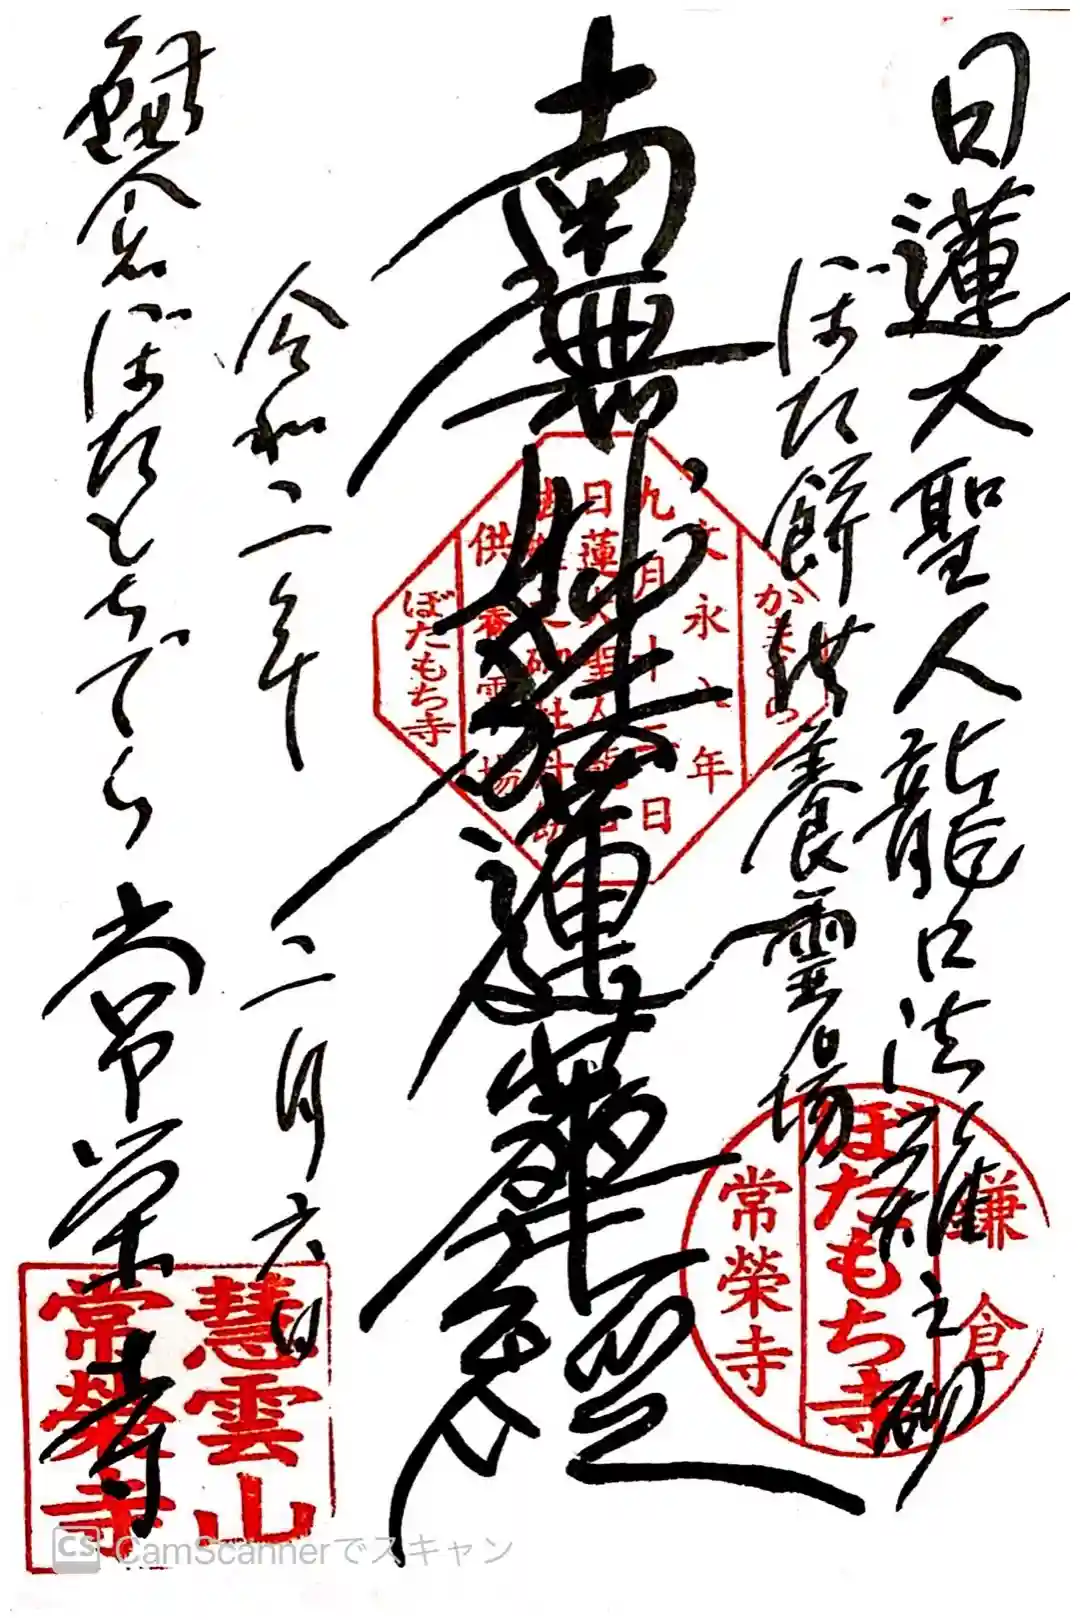 日蓮大聖人龍口法難之砌
ぼた餅供養霊場
南無妙法蓮華経
令和二年 二月六日
鎌倉ぼたもちでら 常栄寺
かまくら
文永八年
九月十二日
日蓮大聖人龍口
供養霊場
ぼたもち寺
鎌倉
ぼたもち寺
常榮寺
慧雲山
常榮寺
CS CamScannerでスキャン